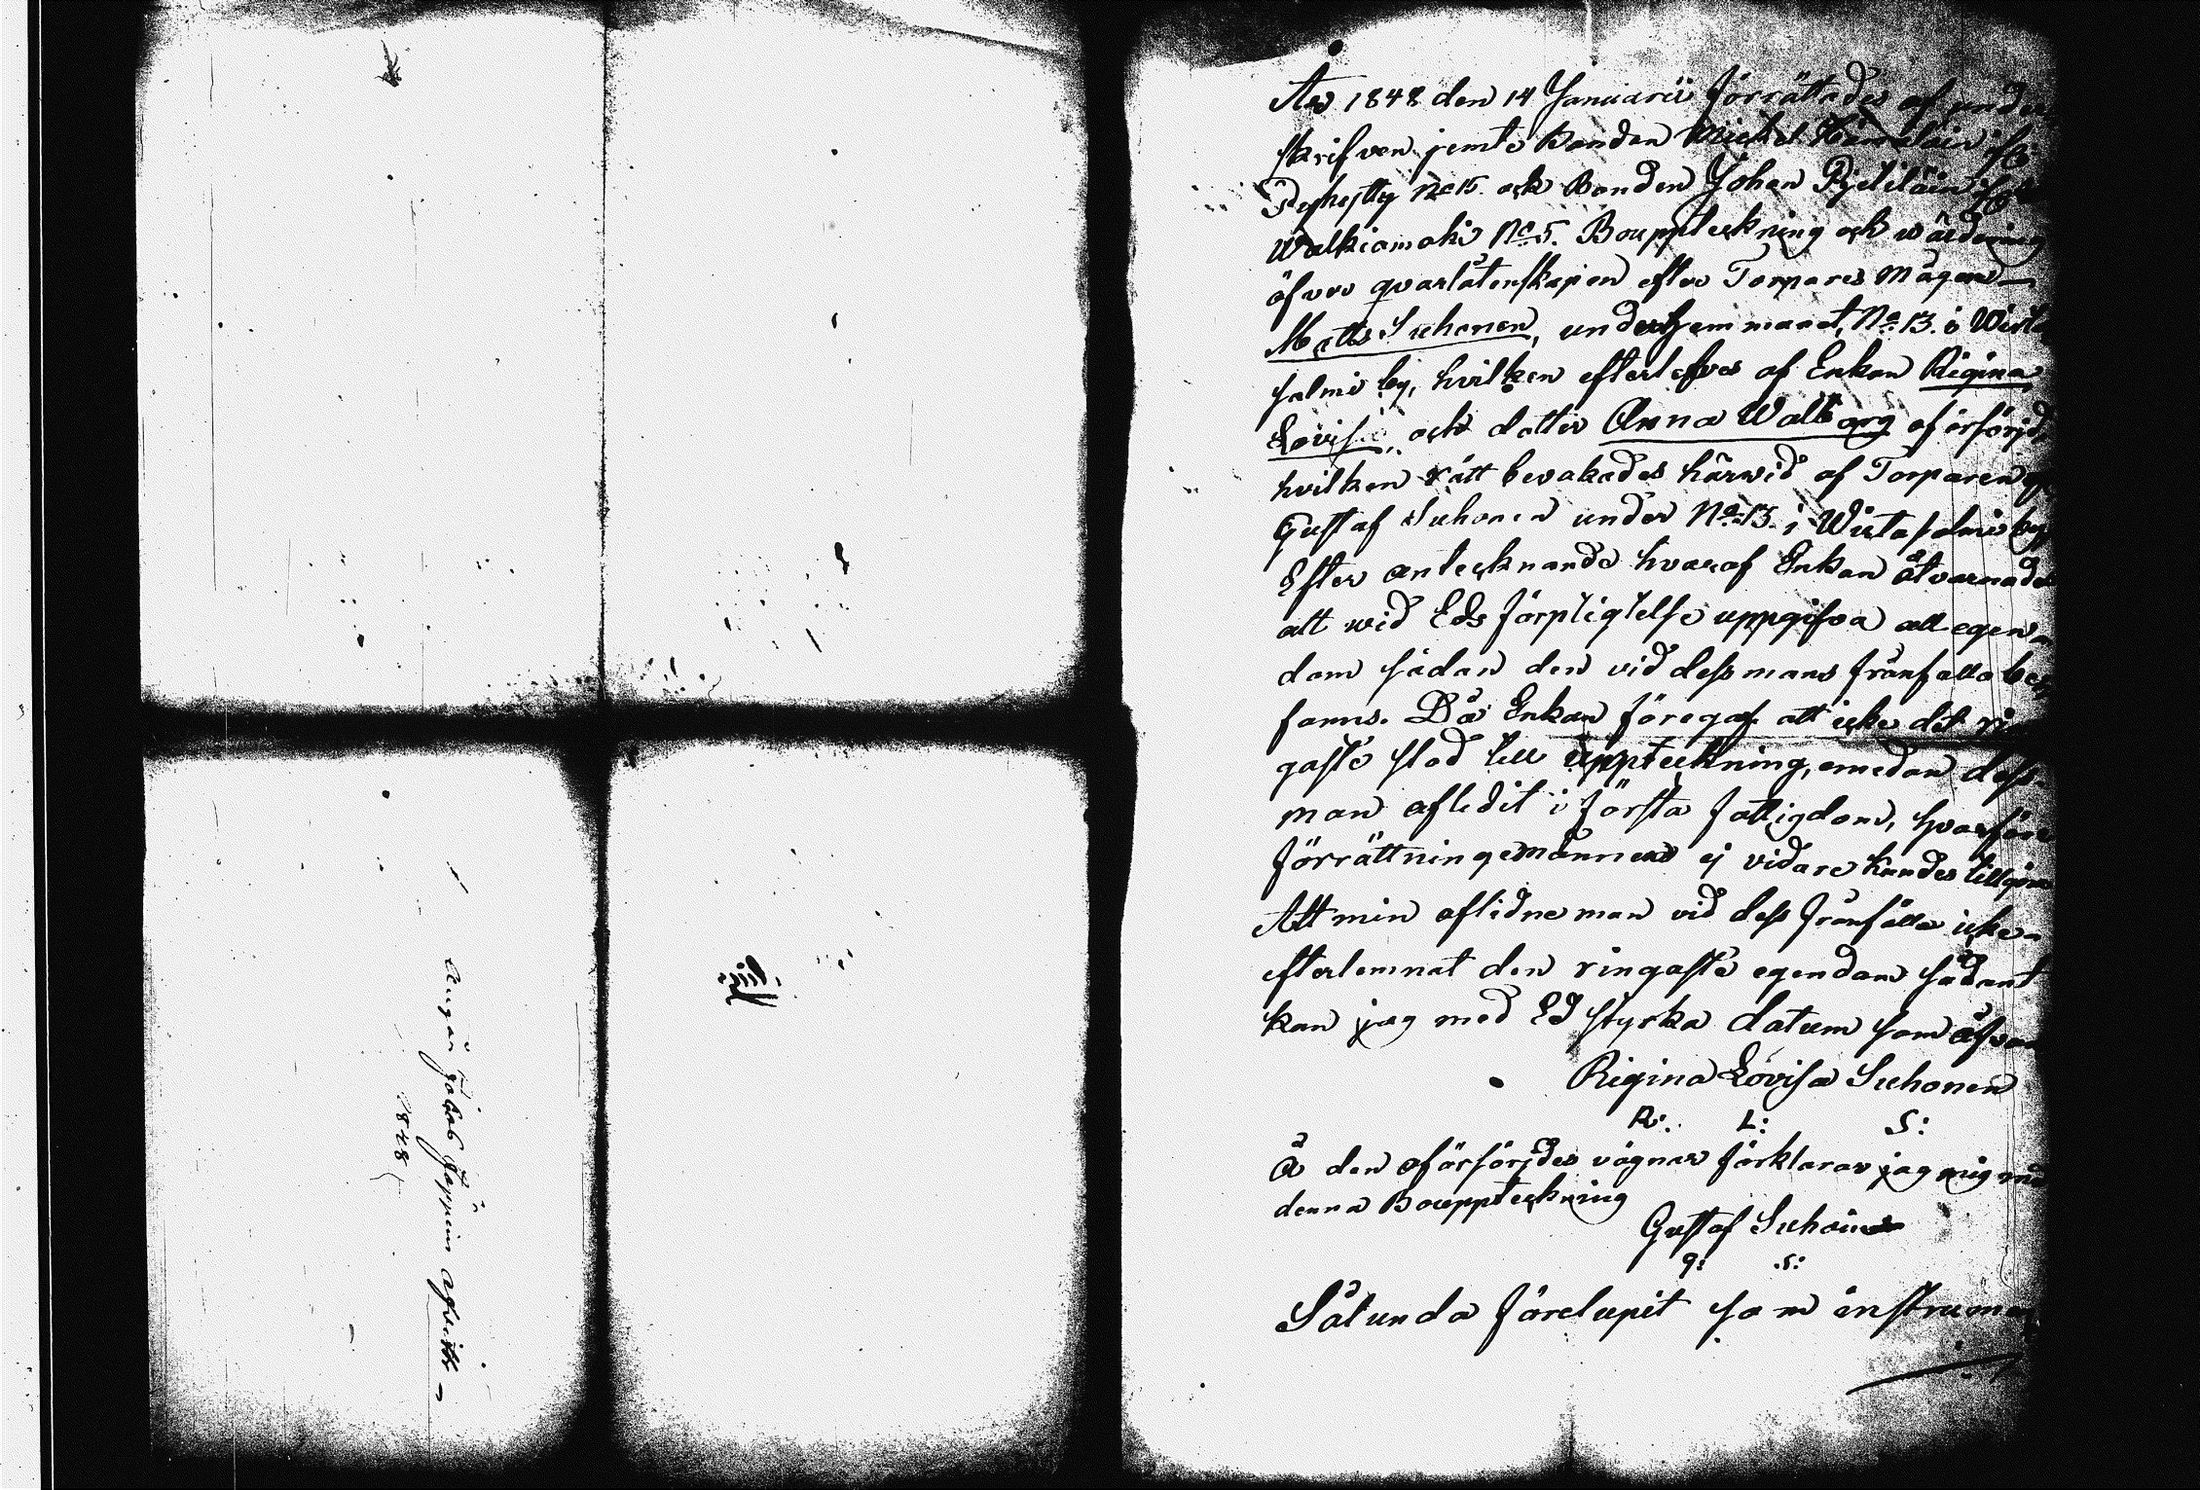 År 1848 den 14 Januarii förrättades af under
skrifven jemte Bonden Michel Hämäläin ifrå
N:o 15. och Bonden Johan Pjetiläin ifrån
Walkiamäki N:o 5. Bouppteckning och värdering
öfver qvarlåtenskapen efter Torpares Mågen
Matts Suhonen, under Hemmanet N:o 13. i Wirta
salmi by, hvilken efterlefves af Enkan Rigina
Lovisa, och dotter Anna Walborg oförsörjd,
hvilken rätt bevakades härvid af Torparen
Gustaf Suhonen under N:o 13. i Wirtasalmi by,
Efter antecknande hvaraf Enkan åtvarnades
att wid Eds förpligtelse uppgifva all egen
dom sådan den vid dess mans frånfälle be
fanns. Då Enkan föregaf att icke det rin
gaste stod till uppteckning, emedan dess
man aflidit i största fattigdom, hvarföre
förrättningsmännen ej vidare kundes tillgöra
Att min aflidne man vid dess frånfälle icke
efterlemnat den ringaste egendom sådant
kan jag med Ed styrka datum som ofvan
Rigina Lovisa Suhonen
R: L: S:
Å den oförsörjdes vägnar förklarar jag mig med
denna Bouppteckning
Gustaf Suhoin
g: s:
Sålunda förelupit som instrumen
Angår Jakob
1848